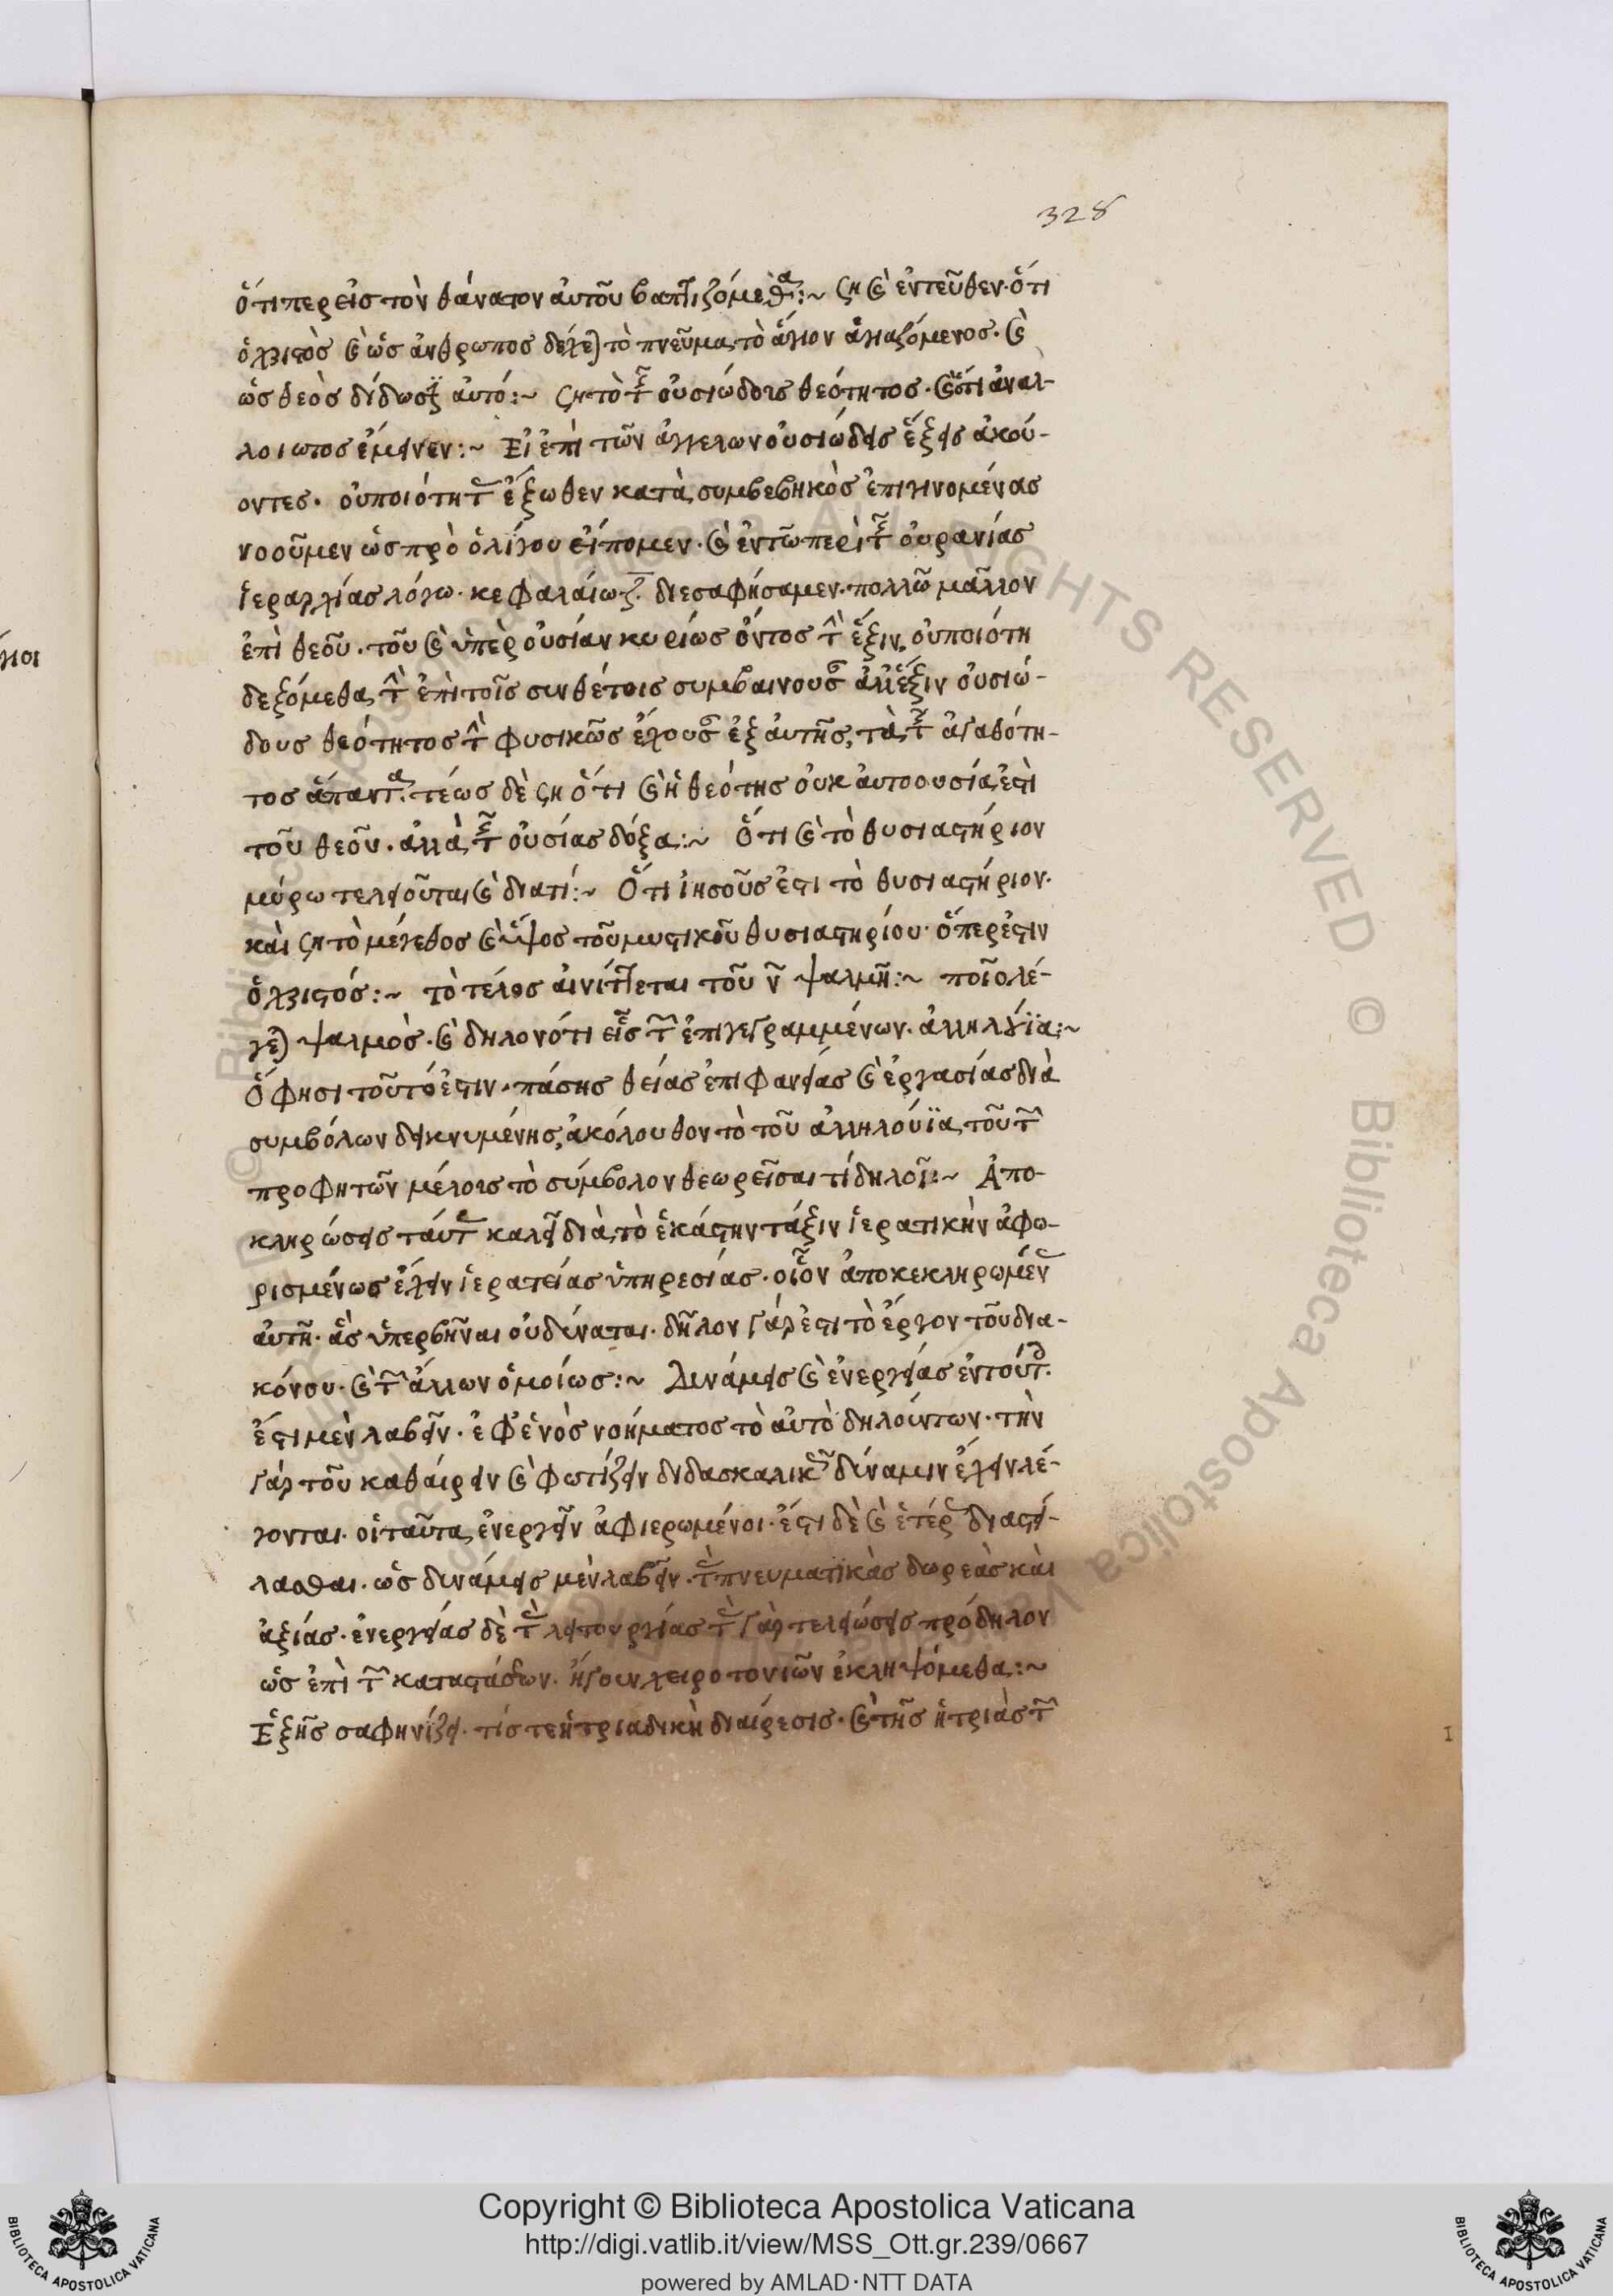 328
ὅτιπερ εἰς τὸν θάνατον αὐτοῦ βαπτιζόμεθα:~ ση καὶ ἐντεῦθεν· ὅτι
ὁ χριστὸς καὶ ὡς ἄνθρωπος δέχεται τὸ πνεῦμα τὸ ἅγιον ἁγιαζόμενος· καὶ
ὡς θεὸς δίδωσι αὐτό:~ ση τὸ τῆς οὐσιώδους θεότητος· καὶ ὅτι ἀναλ-
λοίωτος ἔμεινεν:~ Εἰ ἐπὶ τῶν ἀγγέλων οὐσιώδεις ἕξεις ἀκού-
οντες· οὐ ποιότητας ἔξωθεν κατὰ συμβεβηκὸς ἐπιγινομένας
νοοῦμεν ὡς πρὸ ὀλίγου εἴπομεν· καὶ ἐν τῶ περὶ τῆς οὐρανίας
ἱεραρχίας λόγω· κεφαλαίω ζ· διεσαφήσαμεν· πολλῶ μᾶλλον
ἐπὶ θεοῦ· τοῦ καὶ ὑπὲρ οὐσίαν κυρίως ὄντος τὴν ἕξιν, οὐ ποιότη
δεξόμεθα τὴν ἐπὶ τοῖς συνθέτοις συμβαίνουσαν ἀλλ' ἕξιν οὐσιώ-
δους θεότητος τὴν φυσικῶς ἔχουσαν ἐξ αὐτῆς, τὰ τῆς ἀγαθότη-
τος ἅπαντα· τέως δὲ ση ὅτι καὶ ἡ θεότης οὐκ αὐτοουσία ἐστὶ
τοῦ θεοῦ· ἀλλὰ τῆς οὐσίας δόξα:~ Ὅτι καὶ τὸ θυσιαστήριον
μύρω τελειοῦται καὶ διατί:~ Ὅτι ἰησοῦς ἐστι τὸ θυσιαστήριον·
καὶ ση τὸ μέγεθος καὶ ὕψος τοῦ μυστικοῦ θυσιαστηρίου· ὅπερ ἐστιν
ὁ χριστός:~ τὸ τέλος αἰνίττεται τοῦ ν ψαλμοῦ:~ ποῖο λέ-
γεται ψαλμὸς· καὶ δηλονότι εἷς τῶν ἐπιγεγραμμένων· ἀλληλούϊα:~
Ὅ φησι τοῦτό ἐστιν· πάσης θείας ἐπιφανείας καὶ ἐργασίας διὰ
συμβόλων δεικνυμένης, ἀκόλουθον τὸ τοῦ ἀλληλούϊα τοῦ τῶν
προφητῶν μέλους τὸ σύμβολον θεωρεῖσαι τί δηλοῖ:~ Ἀπο-
κληρώσεις ταύτας καλεῖ διὰ τὸ ἑκάστην τάξιν ἱερατικὴν ἀφω-
ρισμένως ἔχειν ἱερατείας ὑπηρεσίας· οἷον ἀποκεκληρωμένας
αὐτῆ· ἃς ὑπερβῆναι οὐ δύναται· δῆλον γάρ ἐστι τὸ ἔργον τοῦ δια-
κόνου· καὶ τῶν ἄλλων ὁμοίως:~ Δυνάμεις καὶ ἐνεργείας ἐν τούτοις·
ἔστι μὲν λαβεῖν· ἐφ' ἑνὸς νοήματος τὸ αὐτὸ δηλούντων· τὴν
γὰρ τοῦ καθαίρειν καὶ φωτίζειν διδασκαλικὴν δύναμιν ἔχειν λέ-
γονται· οἱ ταῦτα ἐνεργεῖν ἀφιερωμένοι· ἔστι δὲ καὶ ἑτέρως διαστεί-
λασθαι· ὡς δυνάμεις μὲν λαβεῖν· τὰς πνευματικὰς δωρεὰς καὶ
ἀξίας· ἐνεργείας δὲ τὰς λειτουργίας τὰς γὰρ τελειώσεις πρόδηλον
ὡς ἐπὶ τῶν καταστάσεων· ἤγουν χειροτονιῶν ἐκληψόμεθα:~
Ἑξῆς σαφηνίζει· τίς τε ἡ τριαδικὴ διαίρεσις· καὶ τῆς ἡ τριὰς τῶν
Copyright © Biblioteca Apostolica Vaticana
http://digi.vatlib.it/view/MSS_Ott.gr.239/0667
powered by AMLAD·NTT DATA